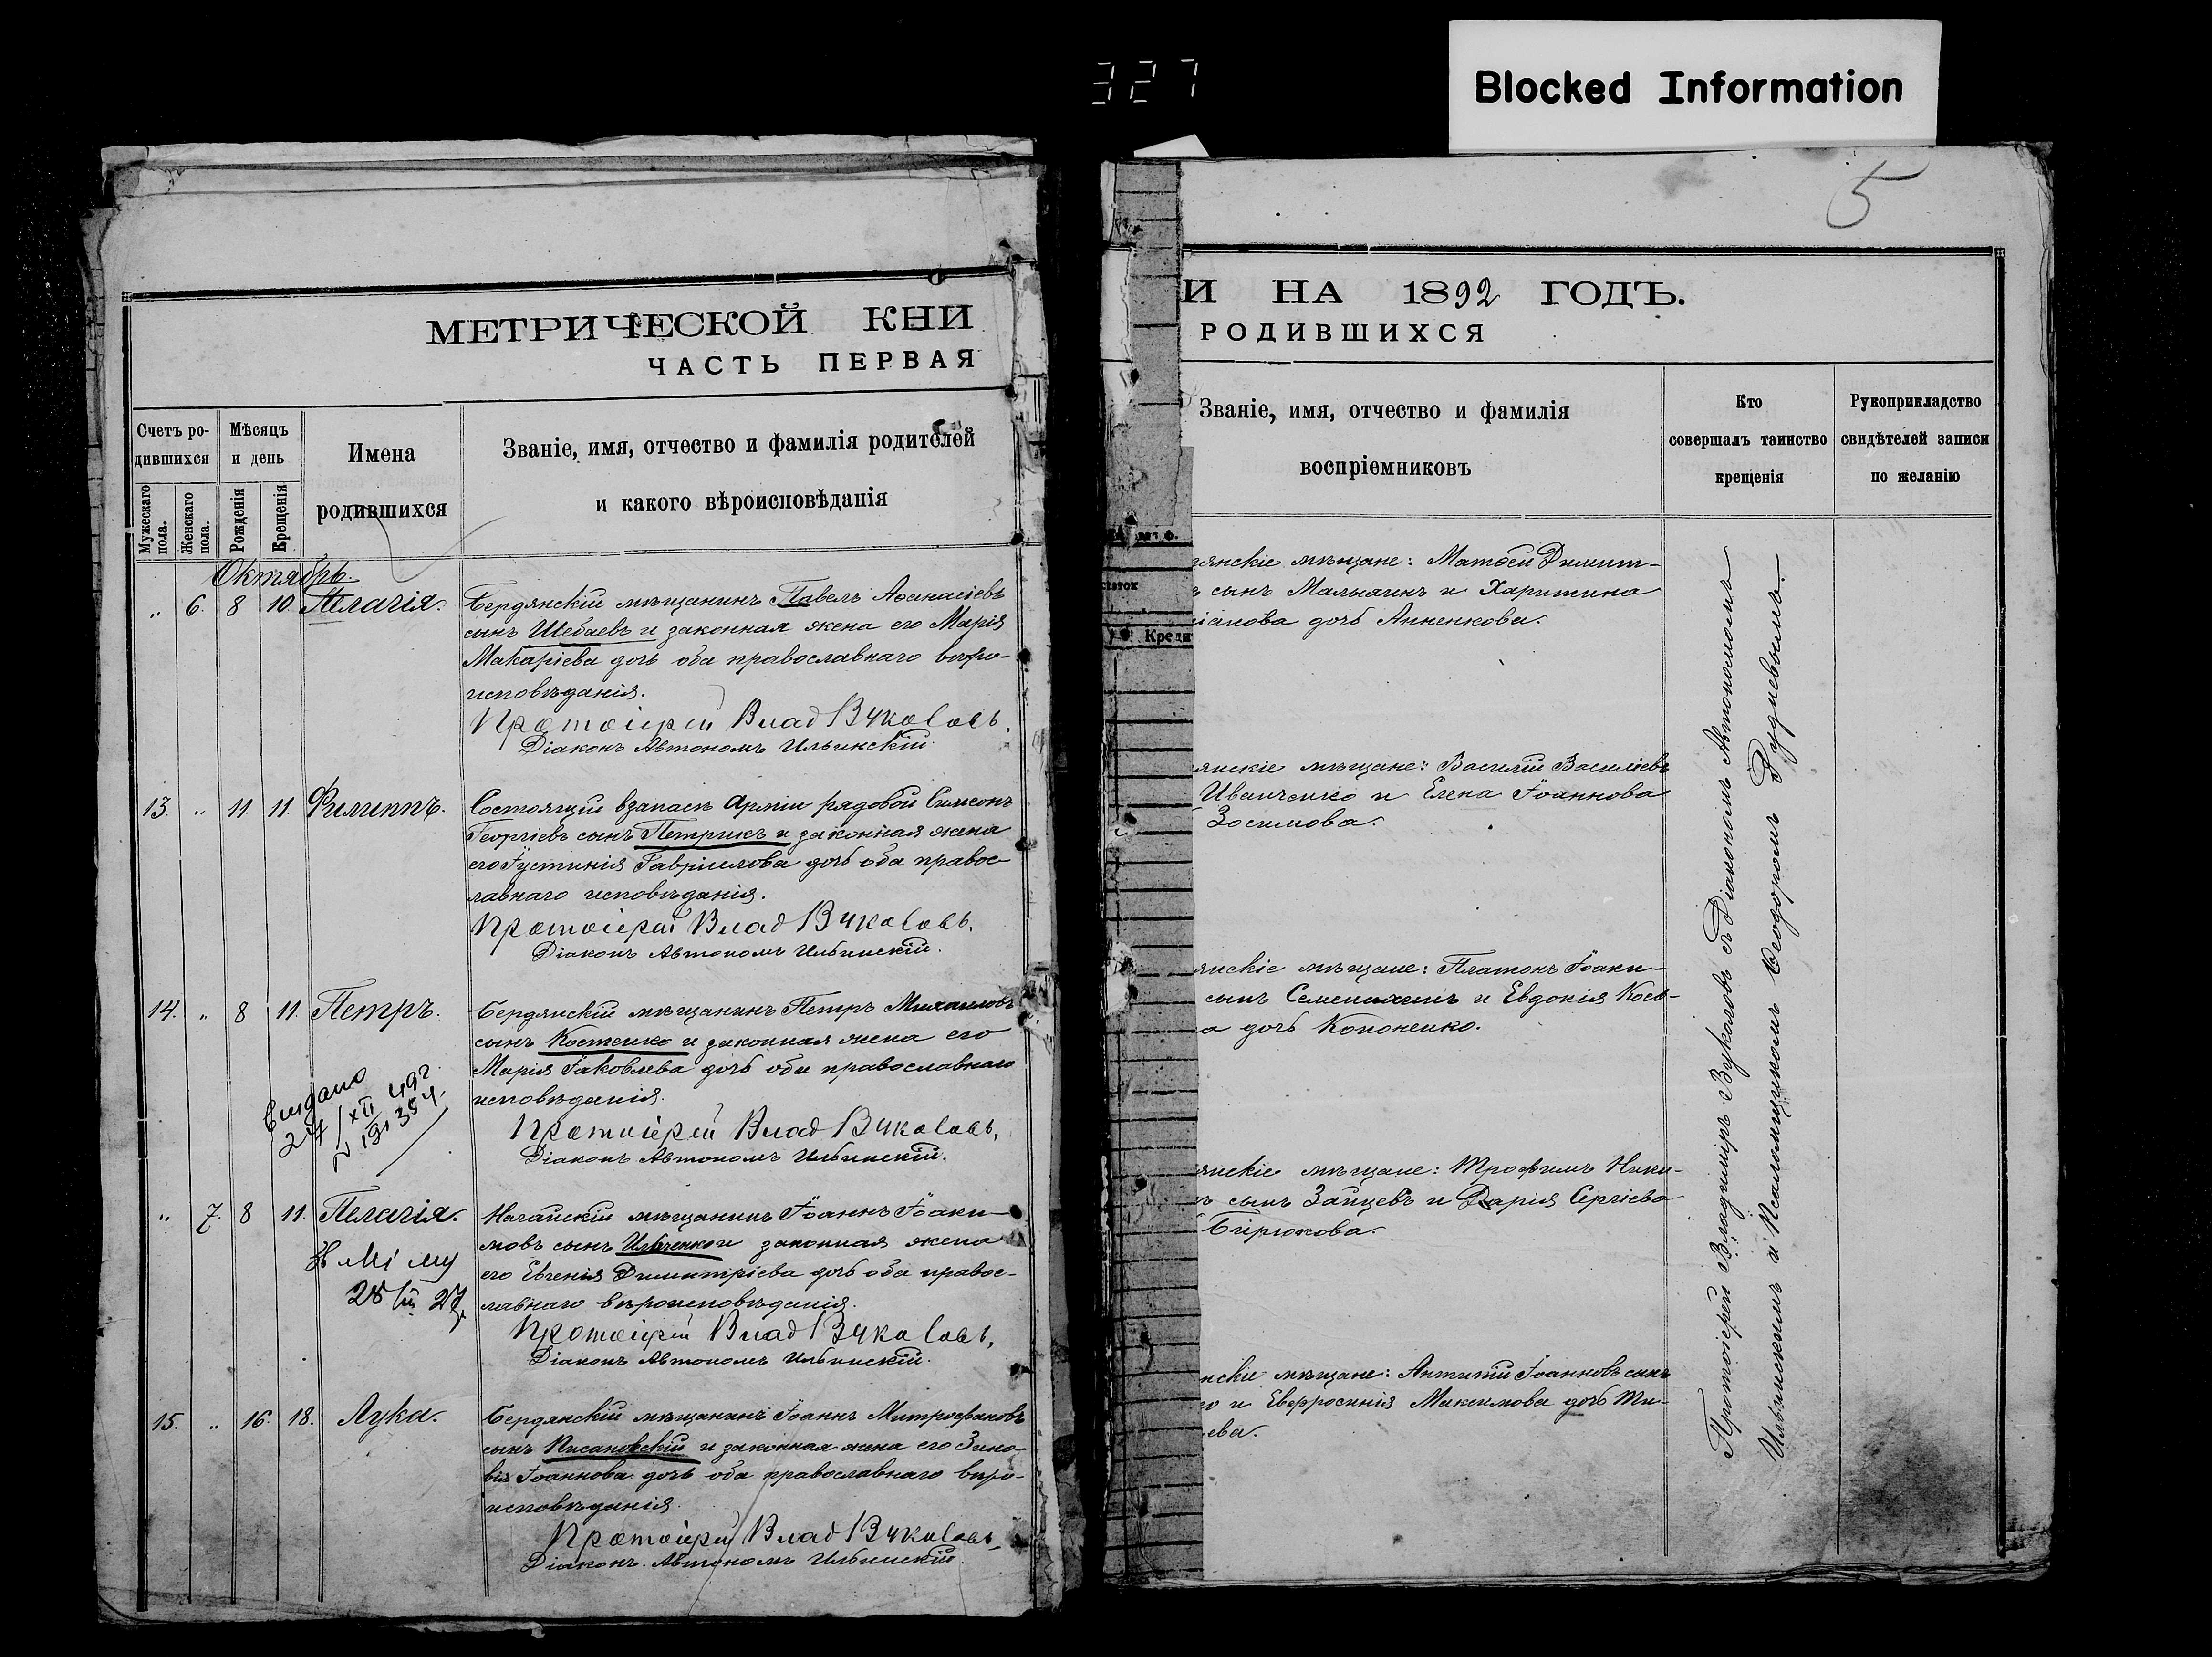 327
Blocked Information
5
МЕТРИЧЕСКОЙ КНИ
ЧАСТЬ ПЕРВАЯ
Счетъ ро-
дившихся
Мѣсяцъ
и день
Мужескаго
пола.
Женскаго
пола.
Рожденія
Крещенія
Имена
родившихся
Званіе, имя, отчество и фамилія родителей
и какого вѣроисповѣданія
Октябрь.
„ 6. 8 10. Пелагія.
Бердянскій мѣщанинъ Павелъ Аѳанасіевъ
сынъ Шебаевъ и законная жена его Марія
Макаріева дочь оба православнаго вѣро-
исповѣданія.
Протоіерей Влад Вукаловъ.
Діаконъ Автономъ Ильинскій.
13. „ 11. 11. Филиппъ.
Состоящій в запасѣ Арміи рядовой Симеонъ
Георгіевъ сынъ Петрикъ и законная жена
его Іустинія Гавріилова дочь оба правос-
лавнаго исповѣданія.
Протоіерей Влад Вукаловъ.
Діаконъ Автономъ Ильинскій.
14. „ 8 11. Петръ.
Выдано
27/XII 49г.
N 191354.
Бердянскій мѣщанинъ Петръ Михаиловъ
сынъ Костенко и законная жена его
Марія Іаковлева дочь оба православнаго
исповѣданія.
Протоіерей Влад Вукаловъ.
Діаконъ Автономъ Ильинскій.
„ 7. 8 11. Пелагія.
28 27
Ногайскій мѣщанинъ Іоаннъ Іоаки-
мовъ сынъ Ильченко и законная жена
его Евгенія Димитріева дочь оба правос-
лавнаго вѣроисповѣданія.
Протоіерей Влад Вукаловъ.
Діаконъ Автономъ Ильинскій.
15. „ 16. 18. Лука.
Бердянскій мѣщанинъ Іоаннъ Митрофановъ
сынъ Писановскій и законная жена его Зино-
вія Іоаннова дочь оба православнаго вѣро-
исповѣданія.
Протоіерей Влад Вукаловъ.
Діаконъ Автономъ Ильинскій.
И НА 1892 ГОДЪ.
РОДИВШИХСЯ
Званіе, имя, отчество и фамилія
воспріемниковъ
Кто
совершалъ таинство
крещенія
Рукоприкладство
свидѣтелей записи
по желанію
статок
Креди
янскіе мѣщане: Матѳей Димит-
ъ сынъ Малыхинъ и Харитина
іанова дочь Анненкова.
янскіе мѣщане: Василій Василіевъ
Иванченко и Елена Іоаннова
Зосимова.
янскіе мѣщане: Платонъ Іоаки-
сынъ Семенихинъ и Евдокія Косв-
а дочь Кононенко.
янскіе мѣщане: Трофимъ Ники-
ъ сынъ Зайцевъ и Дарія Сергіева
Бирюкова.
нскіе мѣщане: Антипій Іоанновъ сынъ
о и Евфросинія Максимова дочь Ти-
ева.
Протоіерей Владиміръ Вукаловъ съ Діакономъ Автономомъ
Ильинскимъ и Псаломщикомъ Ѳеодоромъ Рудневымъ.